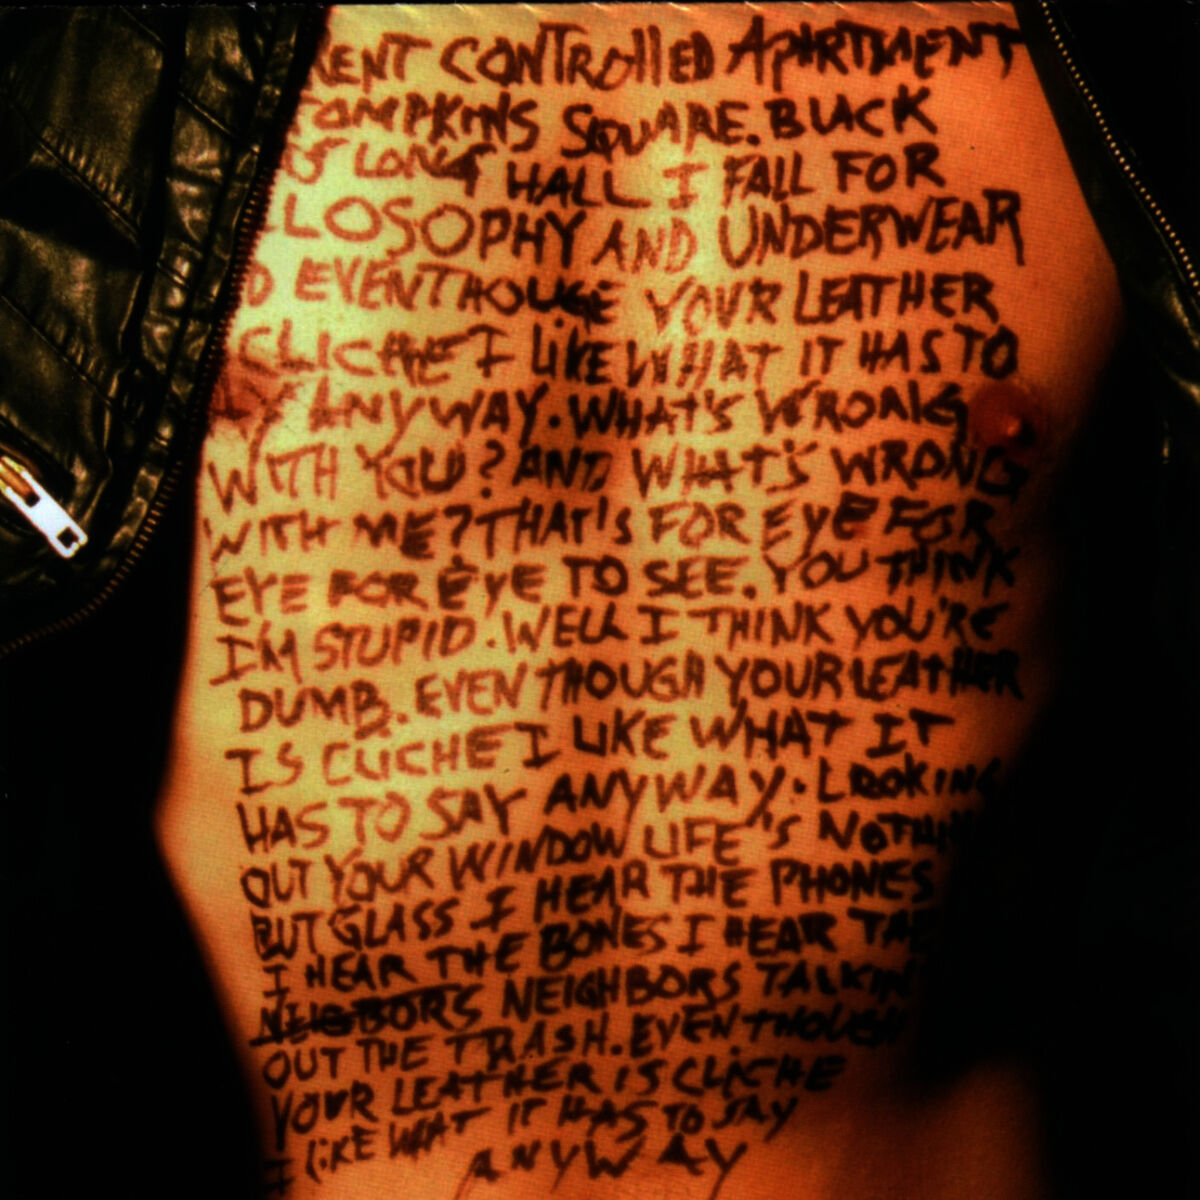 RENT CONTROllED APARTMENT
TOMPKINS SQUARE. BLACK
LONG HALL I FALL FOR
LOSOPHY AND UNDERWEAR
D EVENTHOUGE YOUR LEATHER
CLICHE I LIKE WHAT IT HAS TO
ANYWAY. WHAT'S WRONG
WITH YOU? AND WHAT'S WRONG
WITH ME? THAT'S FOR EYE FOR
EYE FOR EYE TO SEE. YOU THINK
I'M STUPID. WELL I THINK YOU'RE
DUMB. EVEN THOUGH YOUR LEATHER
IS CLICHE I LIKE WHAT IT
HAS TO SAY ANYWAY. LOOKING
OUT YOUR WINDOW LIFE'S NOTHIN
BUT GLASS I HEAR THE PHONES
I HEAR THE BONES I HEAR THE
NEIGBORS NEIGHBORS TALKIN
OUT THE TRASH. EVEN THOUGH
YOUR LEATHER IS CLICHE
I LIKE WHAT IT HAS TO SAY
ANYWAY